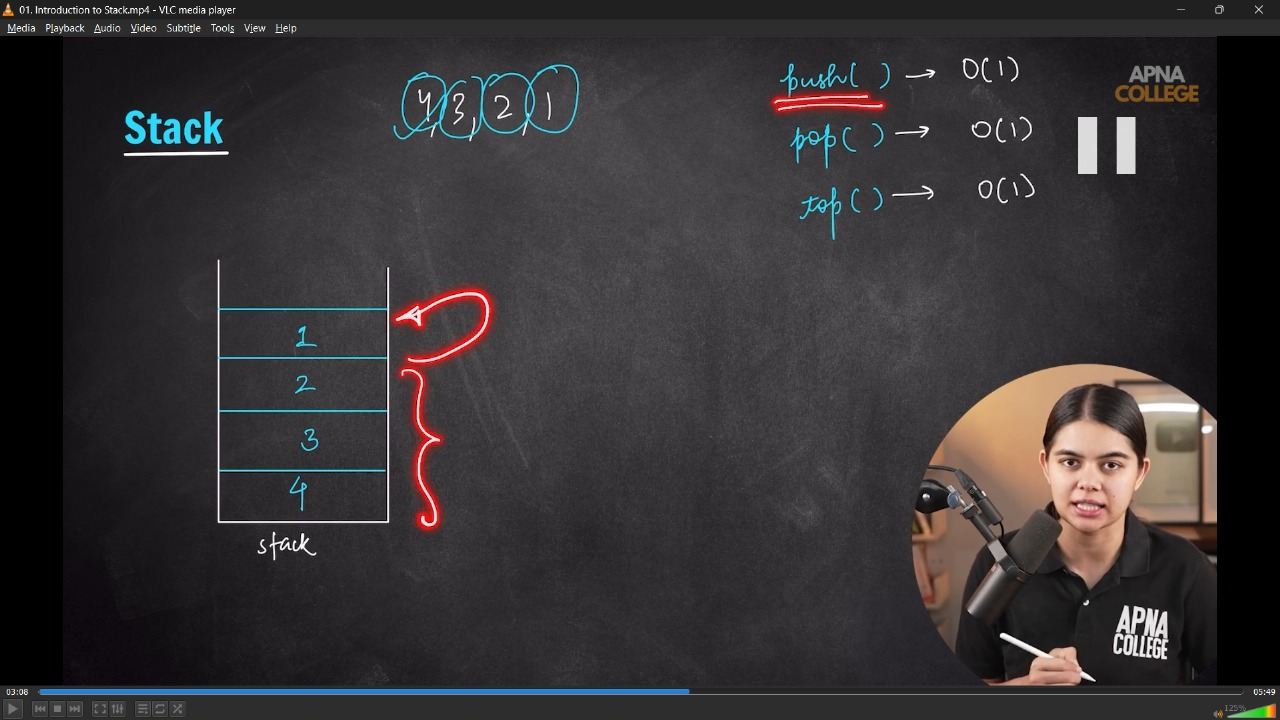 01. Introduction to Stack.mp4 - VLC media player
Media Playback Audio Video Subtitle Tools View Help
4, 3, 2, 1
push( ) → O(1)
APNA
COLLEGE
Stack
pop( ) → O(1)
top( ) → O(1)
1
2
3
4
stack
APNA
COLLEGE
03:08
05:49
125%